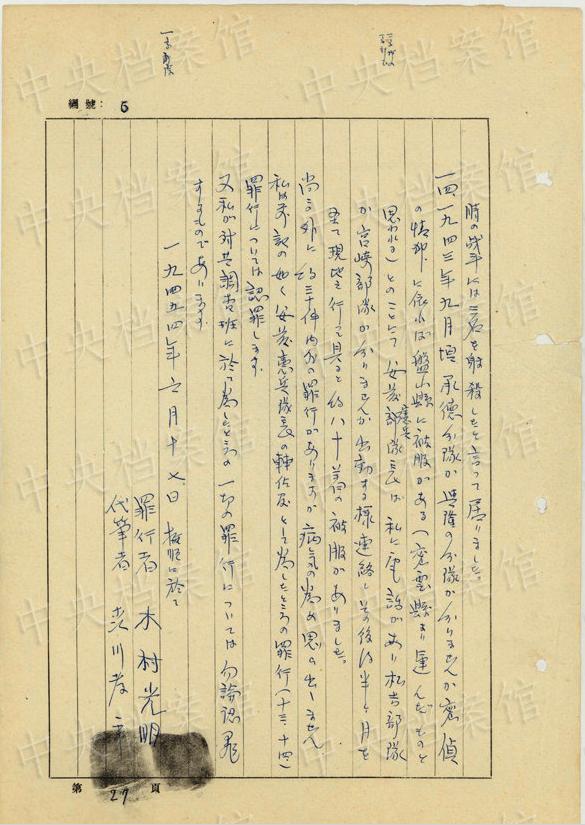 編號：5
時の戦斗には三名を射殺したと言って居りました。
一四、一九四三年九月頃承德分隊か興隆の分隊か分りませんが密偵
の情却に依れば盤山縣に被服がある（密雲縣より運んだものと
思われる）とのことにて安藤憲兵部隊長は私に電話があり松吉部隊
か宮崎部隊か分りませんが出動する様連絡しその後約半ヶ月を
至て現地を行って見ると約八十着の被服がありました。
尚この外に約三十件内外の罪行がありますが病気の為め思ひ出しません
私は前記の如く安藤憲兵隊長の輔佐反として為したところの罪行（十三、十四）
罪行については認罪します。
又私が対共調査班に於て為したところの一切の罪行については勿論認罪
するものであります。
一九五四年 月十七日 撫順に於て
罪行者 木村光明
代筆者 川孝
第 27 頁
中央档案馆